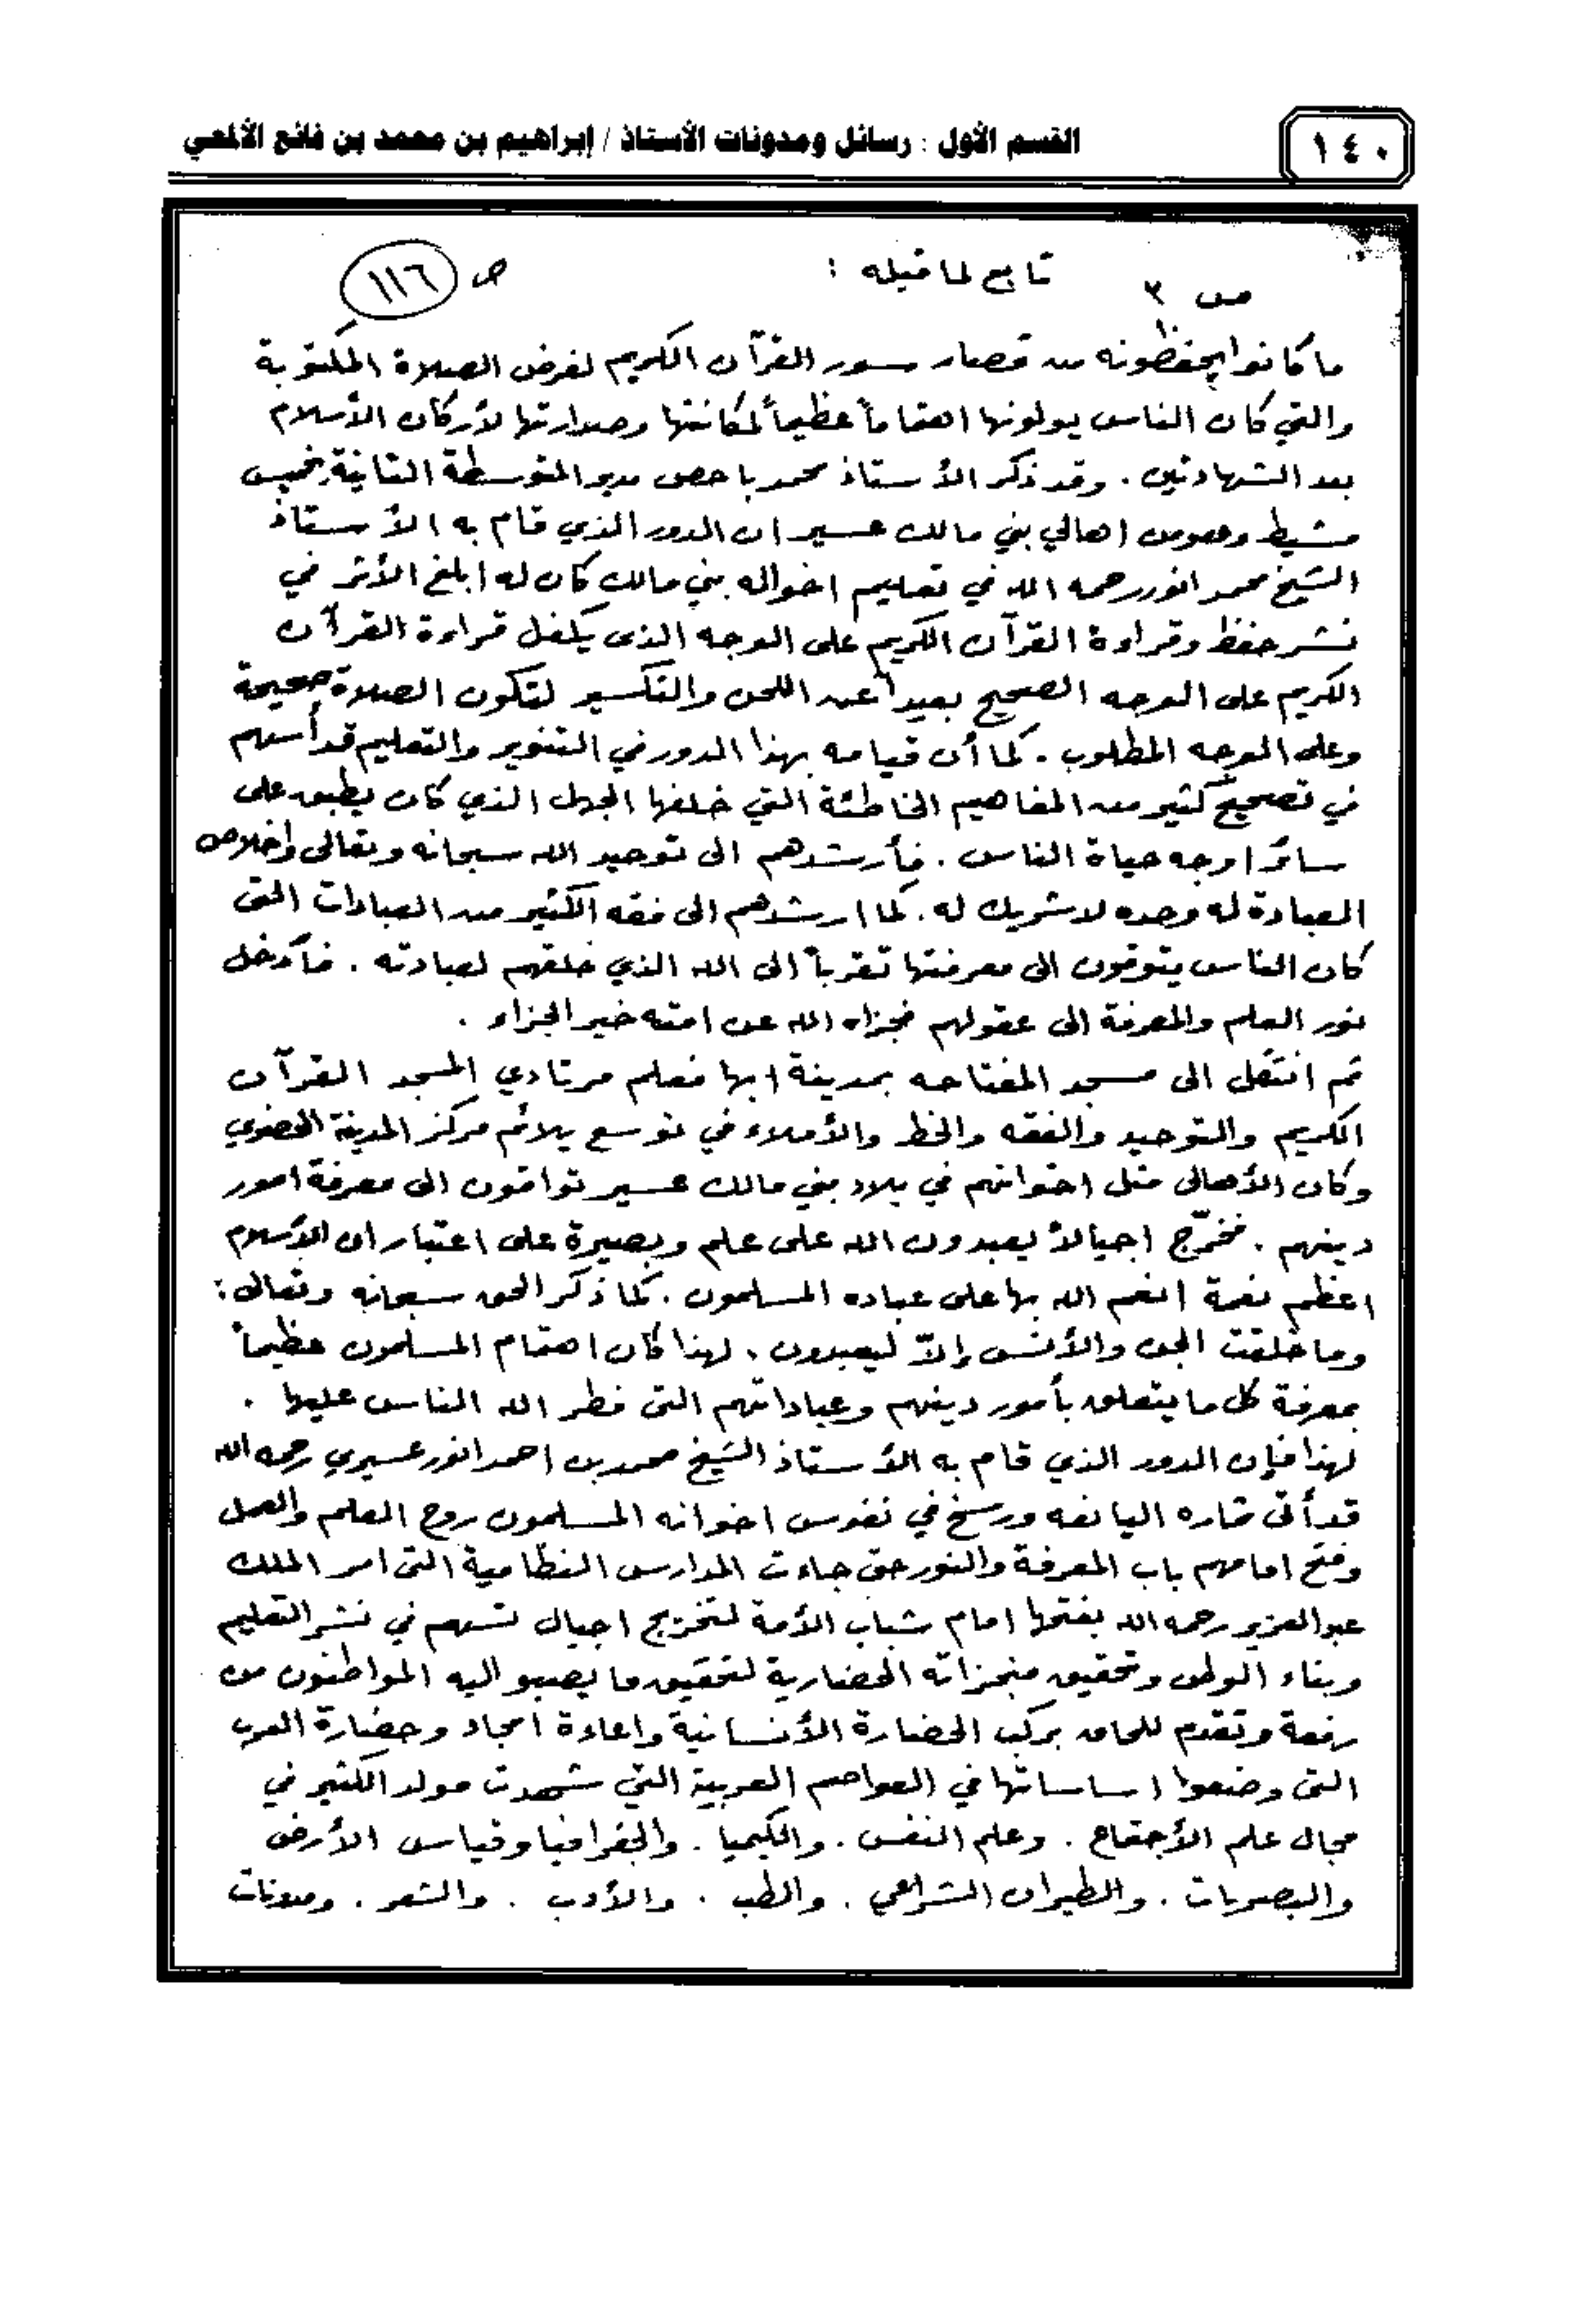 ١٤٠
القسم الأول : رسائل ومدونات الأستاذ / إبراهيم بن محمد بن فائع الألمعي
ص ٣ تابع لما قبله : ص ١١٦
ما كانوا يحفظونه من قصار سور القرآن الكريم لفرض الصلاة المكتوبة
والتي كان الناس يولونها اهتماماً عظيماً لمكانتها وصدارتها لأركان الأسلام
بعد الشهادتين . وقد ذكر الأستاذ محمد باحص مدير المتوسطة الثانية بخميس
مشيط وهومن اهالي بني مالك عسير ان الدور الذي قام به الأستاذ
الشيخ محمد انور رحمه الله في تعليم اخواله بني مالك كان له ابلغ الأثر في
نشر حفظ وقراءة القرآن الكريم على الوجه الذى يكفل قراءة القرآن
الكريم على الوجه الصحيح بعيداً عن اللحن والتكسير لتكون الصلاة صحيحة
وعلى الوجه المطلوب . كما أن قيامه بهذا الدور في التنوير والتعليم قد أسهم
في تصحيح كثير من المفاهيم الخاطئة التي خلفها الجهل الذي كان يطبق على
سائر اوجه حياة الناس . فأرشدهم الى توحيد الله سبحانه وتعالى وإخلاص
العبادة له وحده لا شريك له . كما ارشدهم الى فقه الكثير من العبادات التى
كان الناس يتوقون الى معرفتها تقرباً الى الله الذي خلقهم لعبادته . فأدخل
نور العلم والمعرفة الى عقولهم فجزاه الله عن امته خير الجزاء .
ثم انتقل الى مسجد المفتاحه بمدينة ابها فعلم مرتادي المسجد القرآن
الكريم والتوحيد والفقه والخط والأملاء في توسع يلائم مركز المدينة الحضوي
وكان الأهالى مثل اخوانهم في بلاد بني مالك عسير تواقون الى معرفة امور
دينهم . فخرّج اجيالاً يعبدون الله على علم وبصيرة على اعتبار ان الأسلام
اعظم نعمة انعم الله بها على عباده المسلمون . كما ذكر الحق سبحانه وتعالى :
وما خلقت الجن والأنس إلاّ ليعبدون . لهذا كان اهتمام المسلمون عظيماً
بمعرفة كل ما يتعلق بأمور دينهم وعباداتهم التى فطر الله الناس عليها .
لهذا فإن الدور الذي قام به الأستاذ الشيخ محمد بن احمد انور عسيري رحمه الله
قد أتى ثماره اليانعه ورسخ في نفوس اخوانه المسلمون روح العلم والعمل
وفتح امامهم باب المعرفة والنور حتى جاءت المدارس النظامية التى امر الملك
عبدالعزيز رحمه الله بفتحها امام شباب الأمة لتخريج اجيال تسهم في نشر التعليم
وبناء الوطن وتحقيق منجزاته الحضارية لتحقيق ما يصبو اليه المواطنون من
رفعة وتقدم للحاق بركب الحضارة الأنسانية واعادة امجاد وحضارة العرب
التى وضعوا اساساتها في العواصم العربية التي شهدت مولد الكثير في
مجال علم الأجتماع . وعلم النفس . والكيميا . والجغرافيا وقياس الأرض
والبصريات . والطيران الشراعي . والطب . والأدب . والشعر . ومدونات